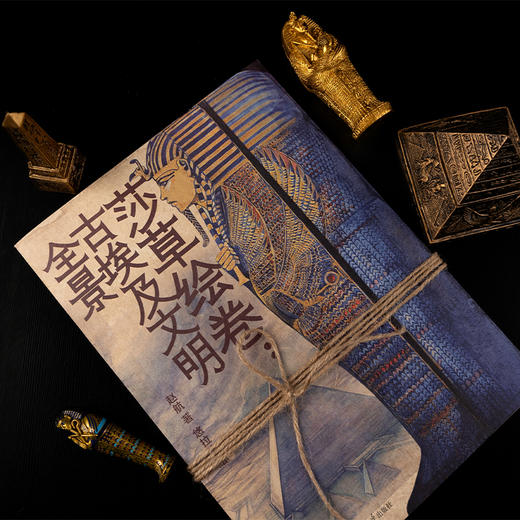 莎草绘卷：
古埃及文明
全景
赵航 著 悠拉
出版社